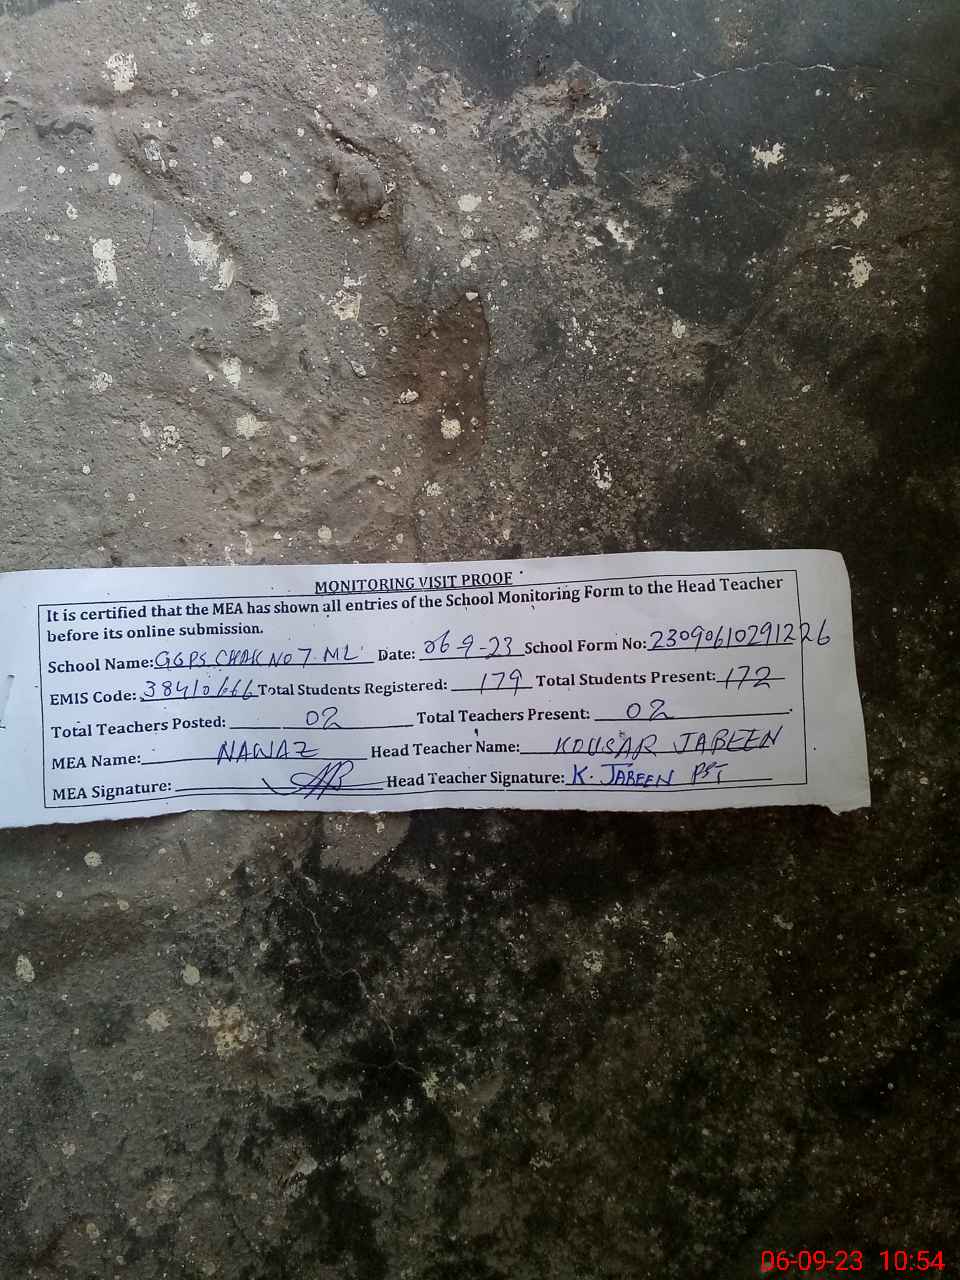 MONITORING VISIT PROOF
It is certified that the MEA has shown all entries of the School Monitoring Form to the Head Teacher
before its online submission.
School Name: GGPS CHAK NO 7. ML Date: 06-9-23 School Form No: 23090610291226
EMIS Code: 38410666 Total Students Registered: 179 Total Students Present: 172
Total Teachers Posted: 02 Total Teachers Present: 02
MEA Name: NAWAZ Head Teacher Name: KOUSAR JABEEN
MEA Signature: Head Teacher Signature: K. JABEEN PST
06-09-23 10:54